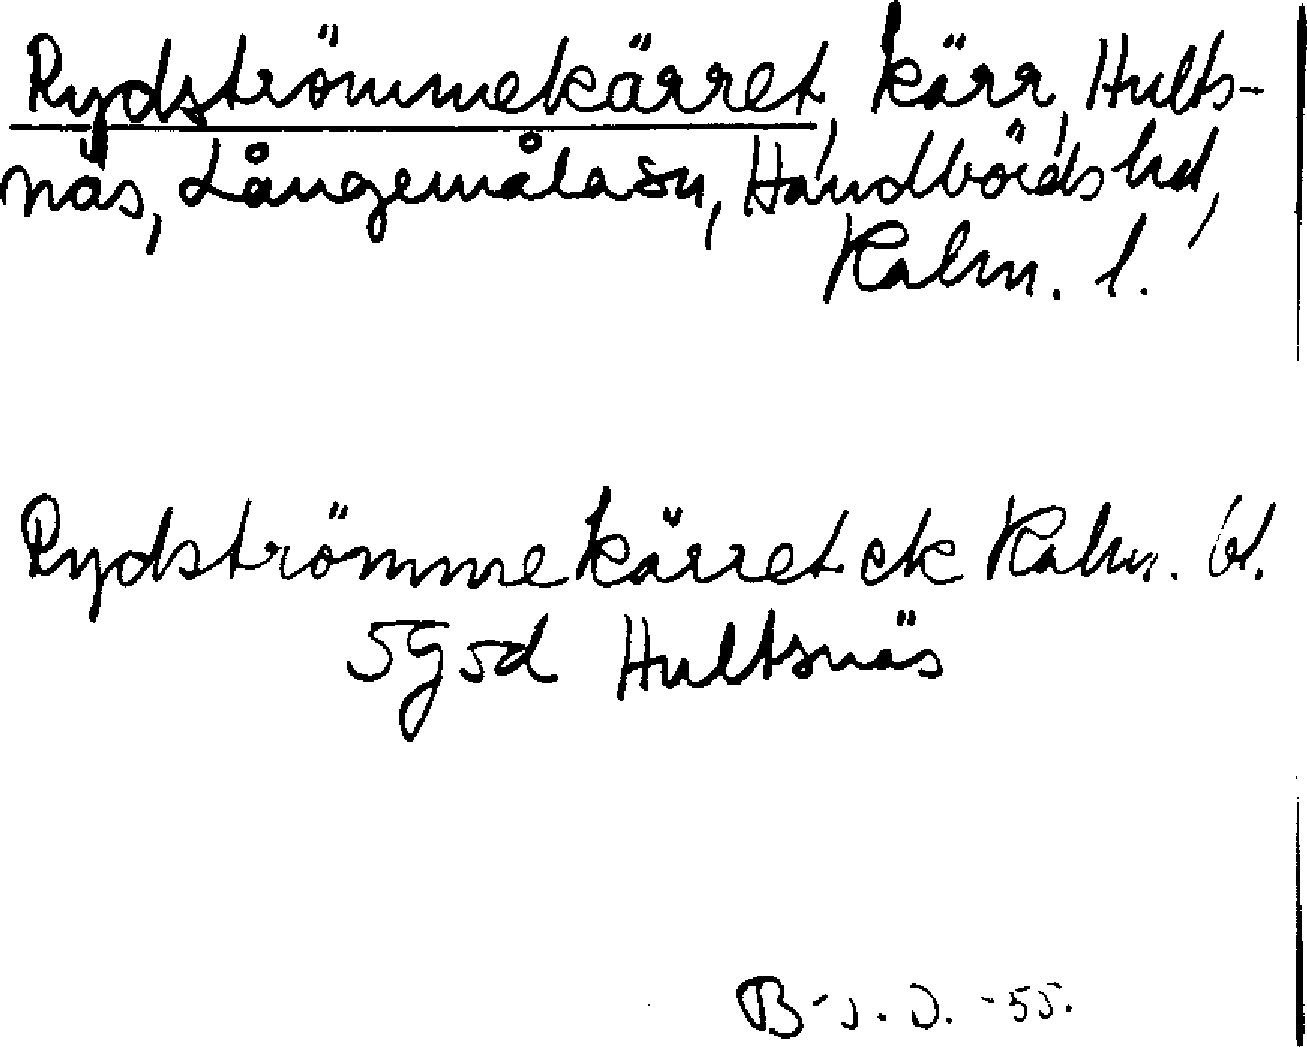 Rydströmmekärret, kärr, Hults-
näs, Långemåla sn, Handbörds hd,
Kalm. l.
Rydströmmekärret ek Kalm. bl.
5g5d Hultsnäs
B-s. D. -55.